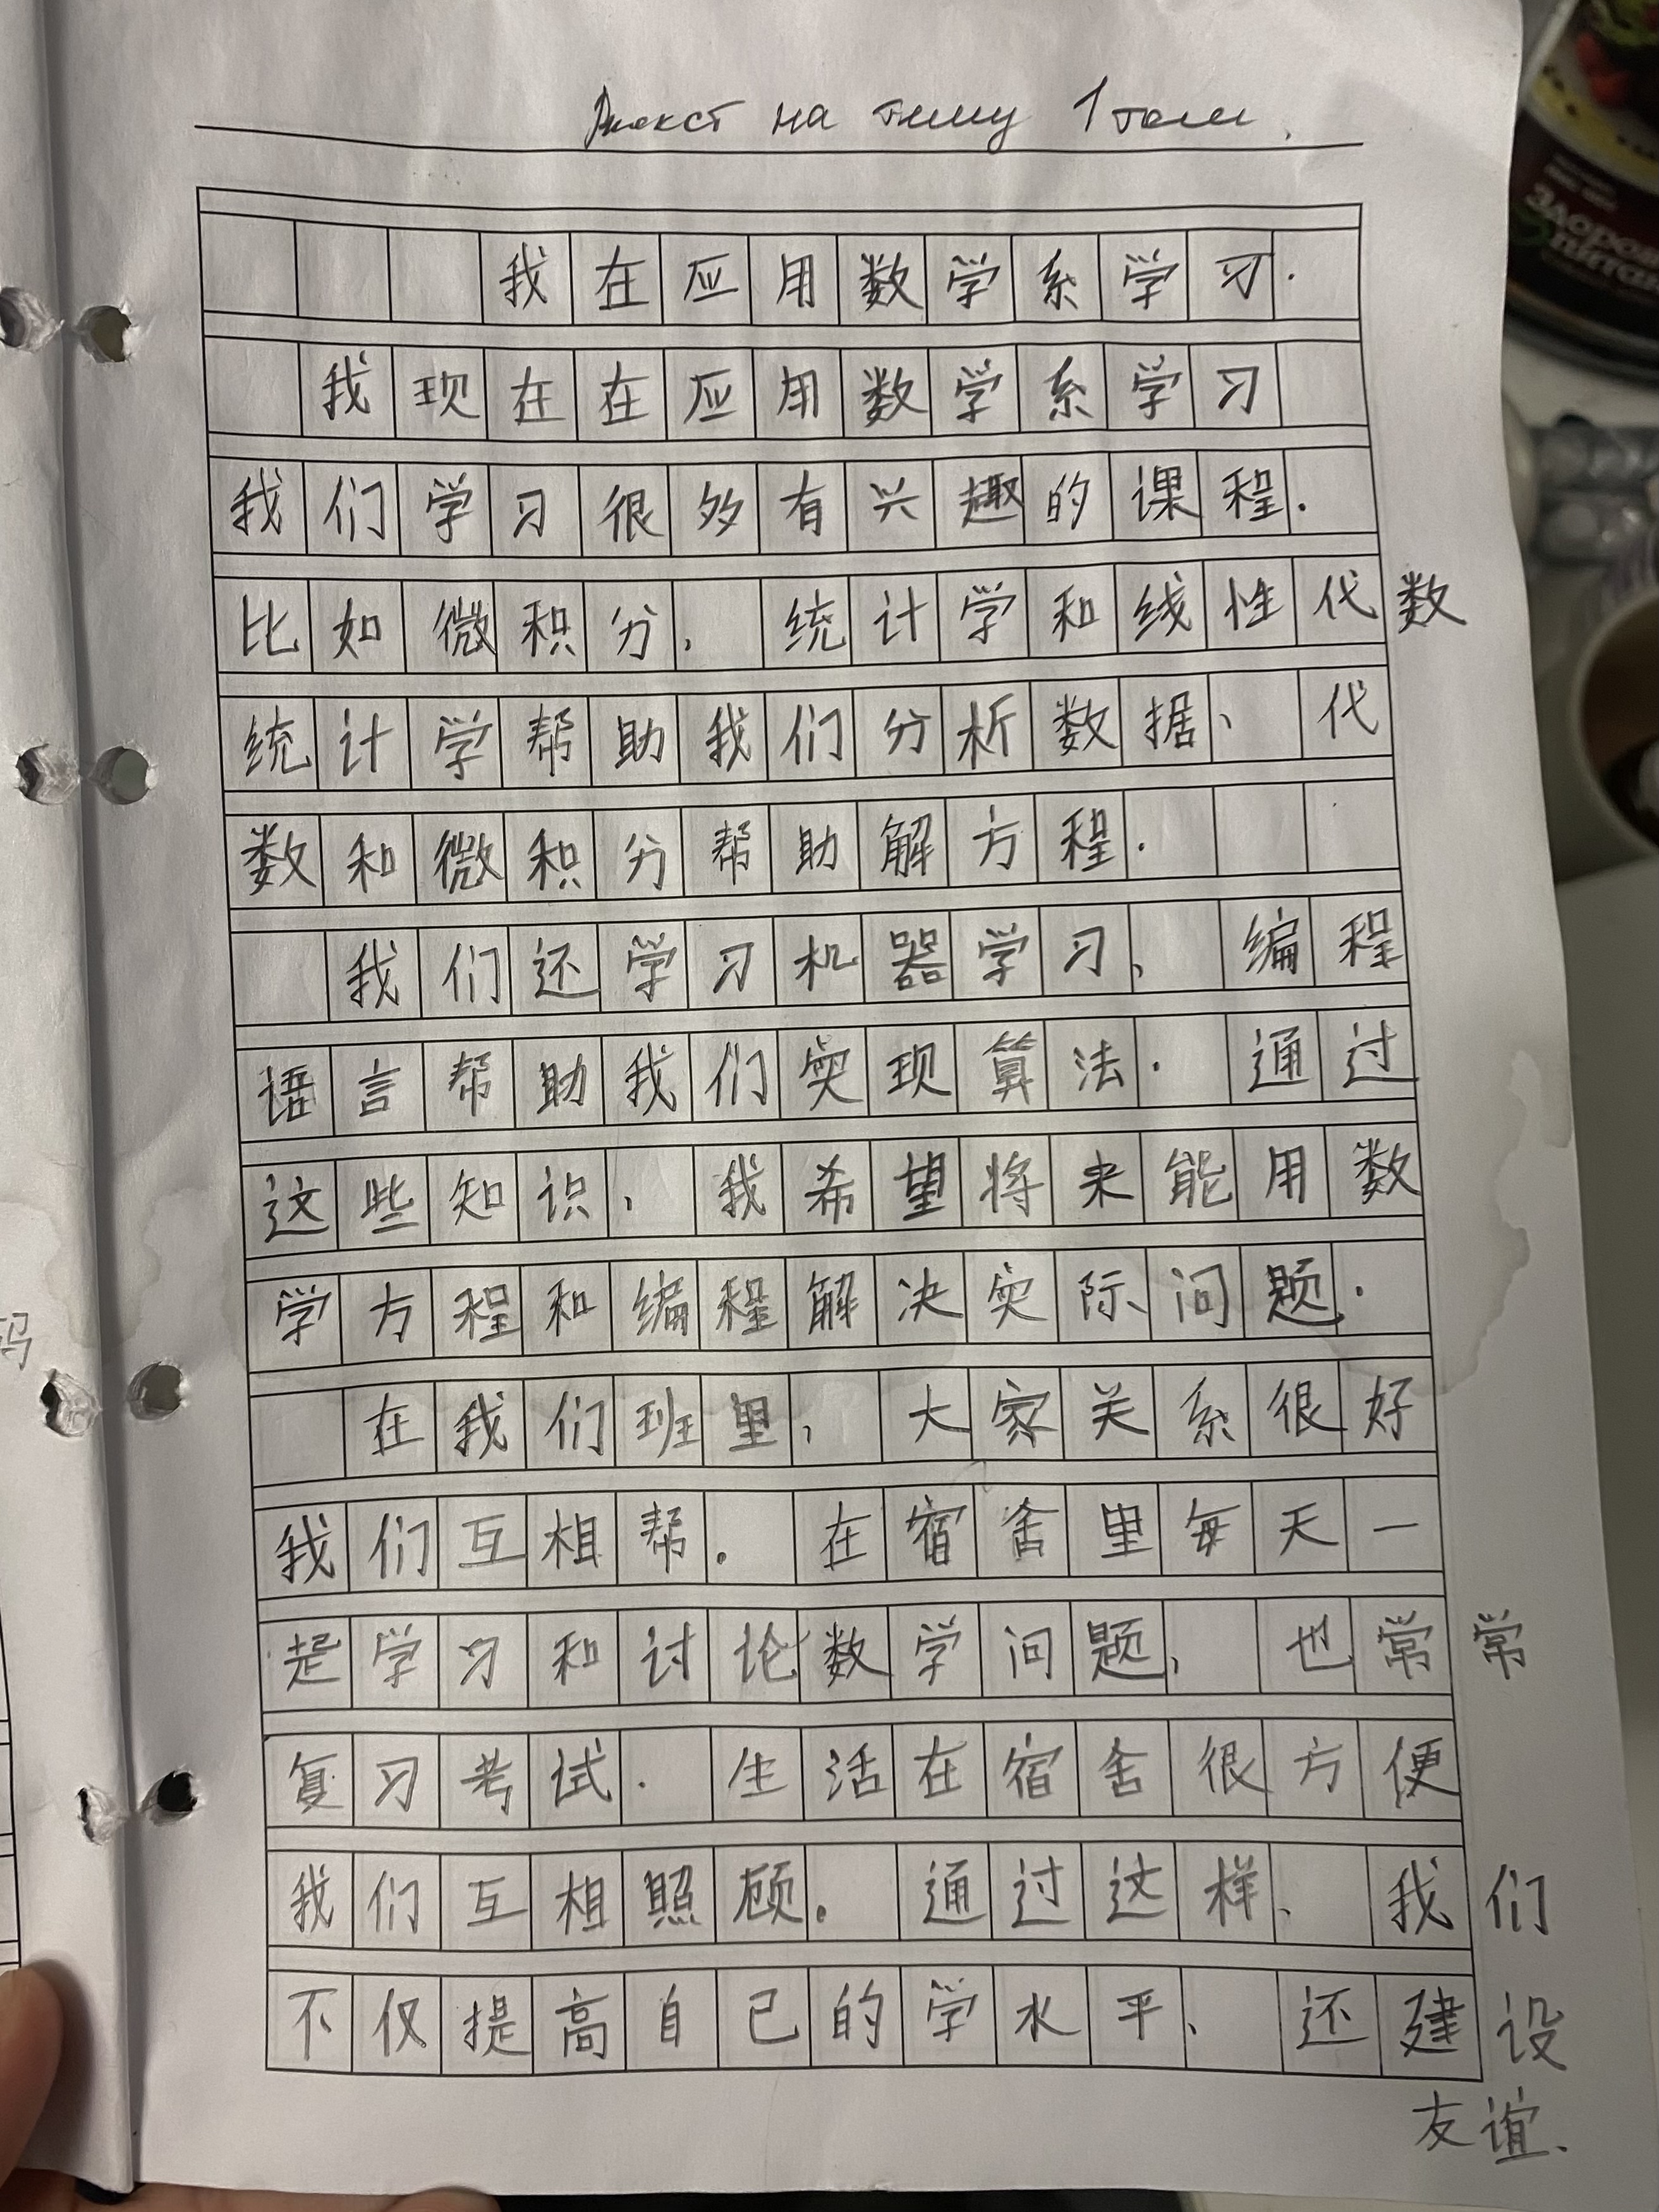 Текст на тему 1 темы.
我在应用数学系学习.
我现在在应用数学系学习
我们学习很多有兴趣的课程.
比如微积分, 统计学和线性代数
统计学帮助我们分析数据、代
数和微积分帮助解方程.
我们还学习机器学习、编程
语言帮助我们实现算法. 通过
这些知识, 我希望将来能用数
学方程和编程解决实际问题.
在我们班里, 大家关系很好
我们互相帮。在宿舍里每天一
起学习和讨论数学问题, 也常常
复习考试. 生活在宿舍很方便
我们互相照顾。通过这样、我们
不仅提高自己的学水平、还建设
友谊.
码